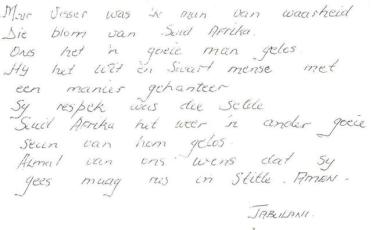 Mnr Visser was 'n man van waarheid
Die blom van Suid Afrika.
Ons het 'n goeie man gelos.
Hy het Wit èn Swart mense met
een manier gehanteer
Sy respek was die Selde
Suid Afrika het weer 'n ander goeie
seun van hom gelos.
Almal van ons wens dat sy
gees maag rus in Stille. AMEN.
JABULANI.